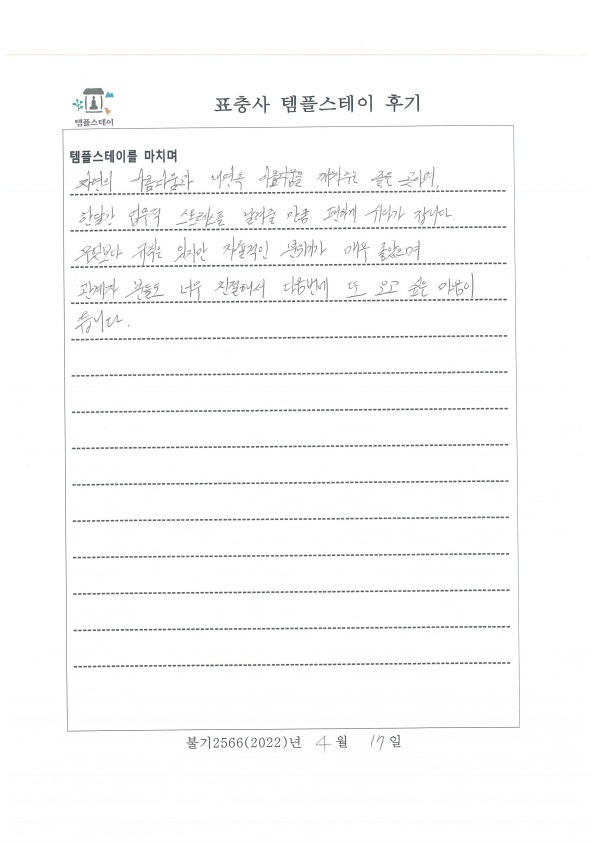 템플스테이
표충사 템플스테이 후기
템플스테이를 마치며
자연의 아름다움과 내면속 아름다움을 깨워주는 좋은 곳이며,
한달간 업무적 스트레스를 날려줄 만큼 편하게 쉬다가 갑니다.
무엇보다 규칙은 있지만 자율적인 분위기가 매우 좋았으며
관계자 분들도 너무 친절해서 다음번에 또 오고 싶은 마음이
듭니다.
불기2566(2022)년 4월 17일